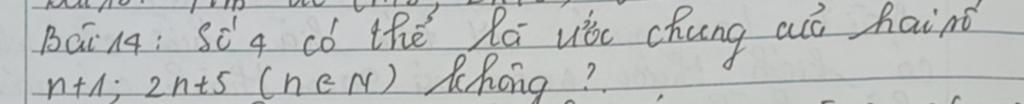 Bài 14: Số 4 có thể là ước chung của hai số
n+1; 2n+5 (n ∈ N) không?